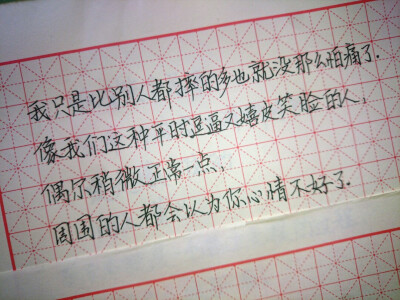 我只是比别人都摔的多也就没那么怕痛了.
像我们这种平时逗逼又嬉皮笑脸的人,
偶尔稍微正常一点,
周围的人都会以为你心情不好了.